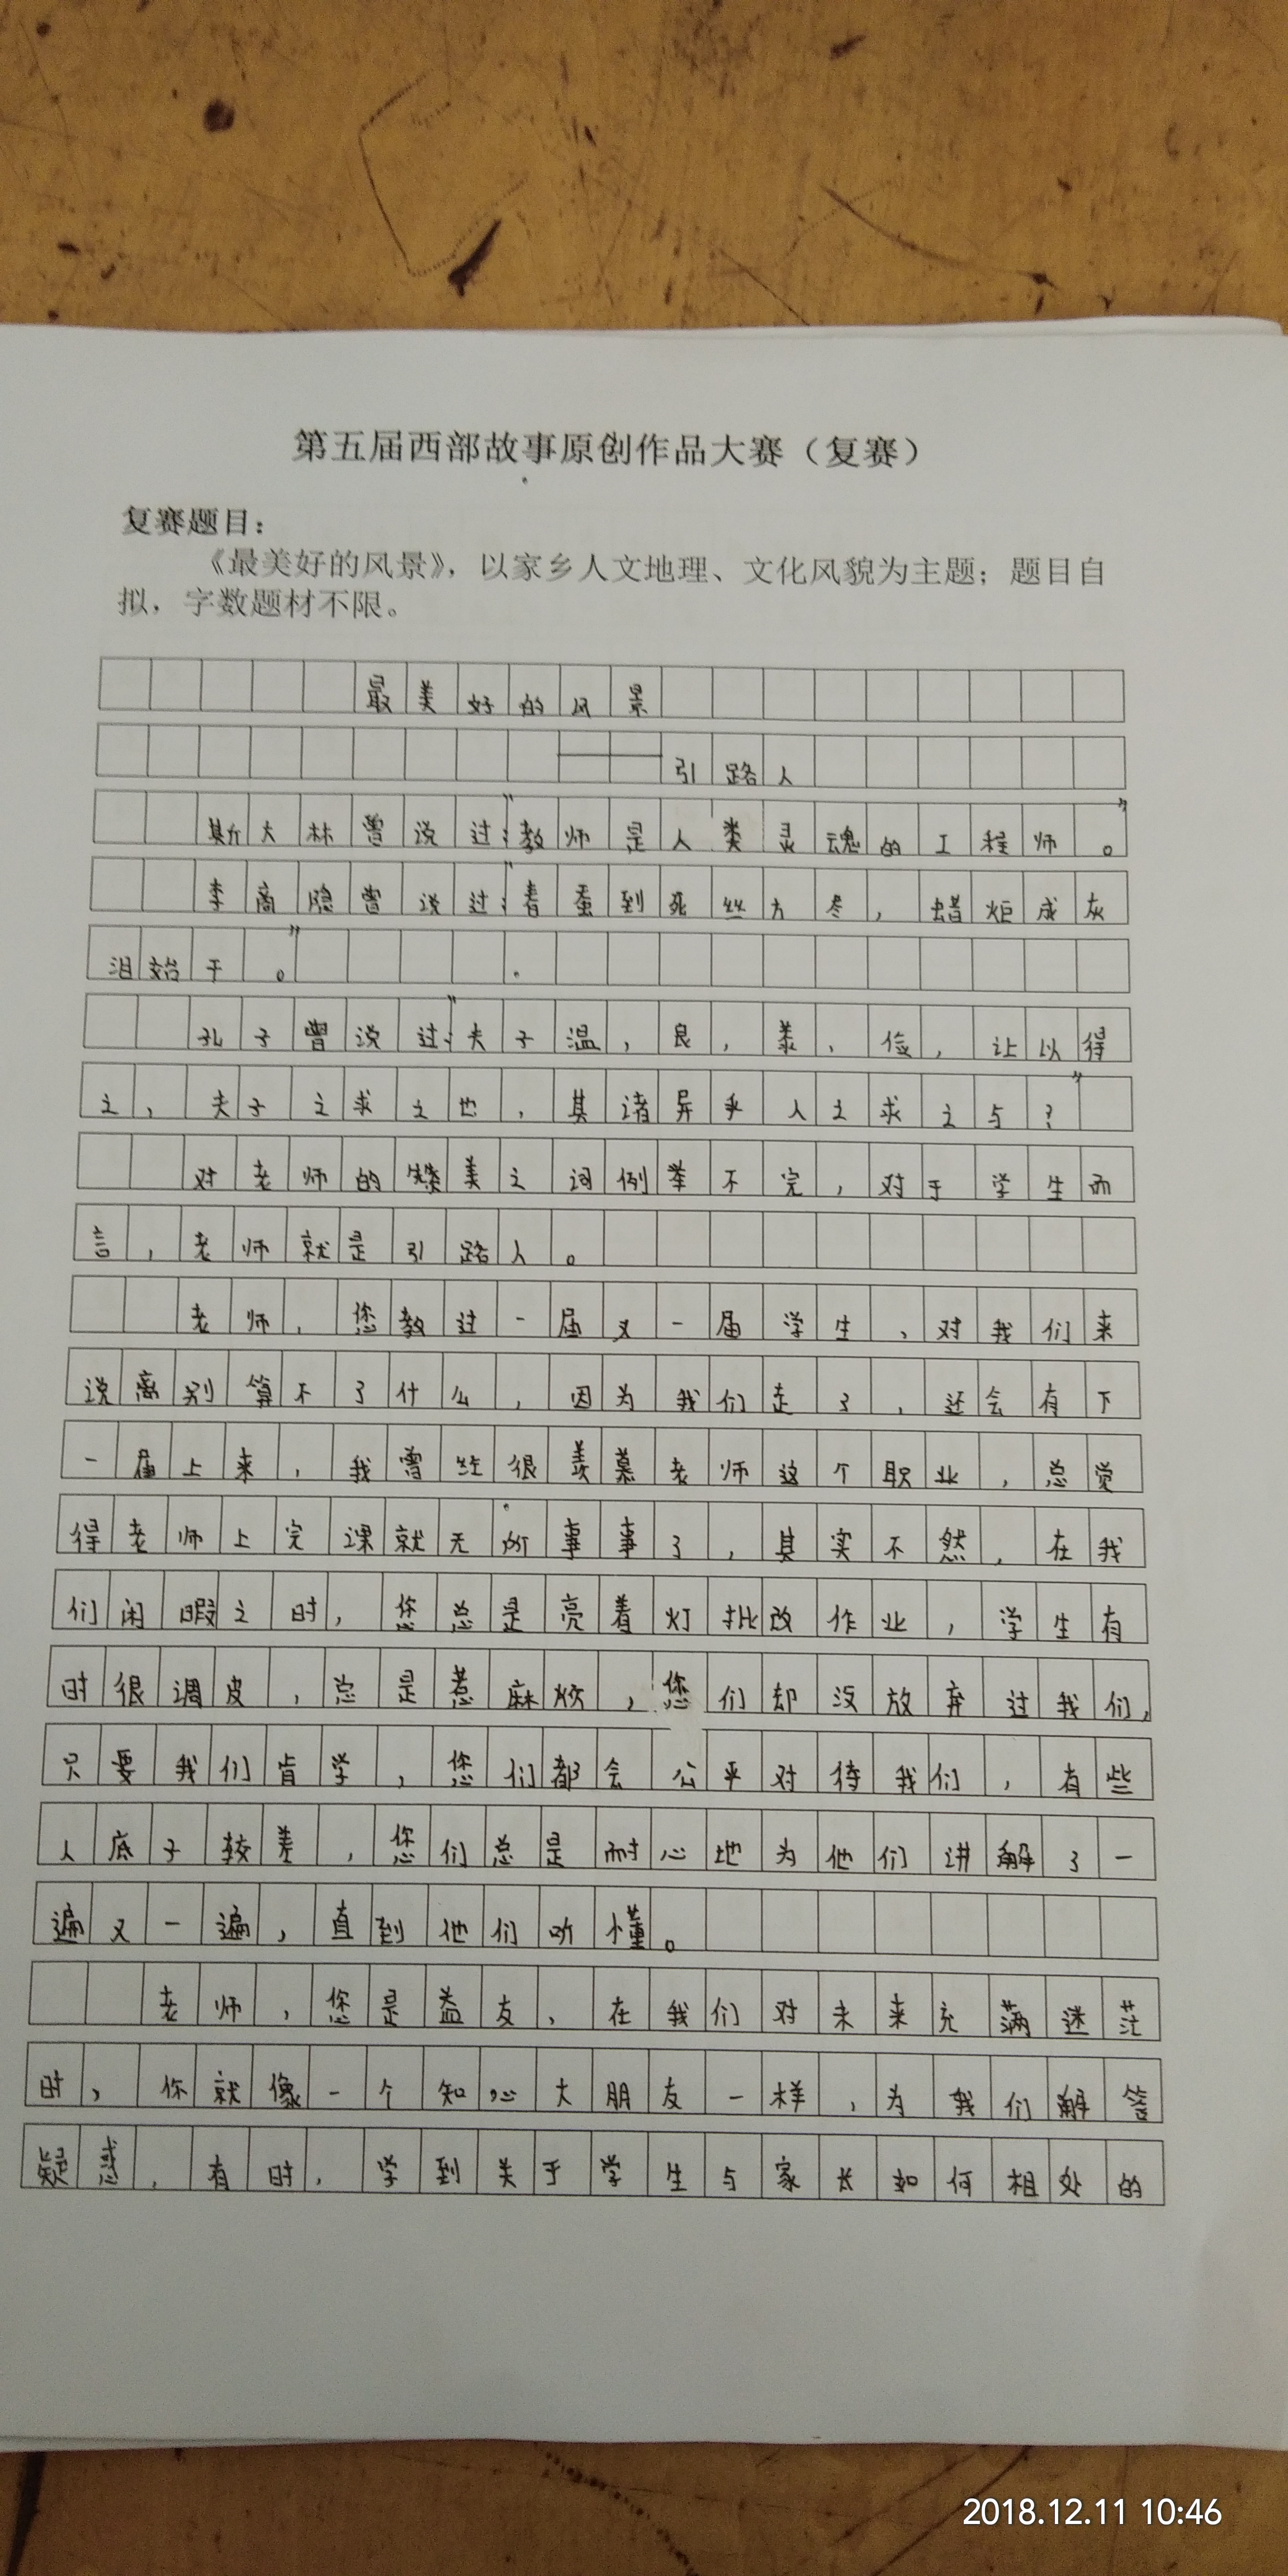 第五届西部故事原创作品大赛（复赛）
复赛题目：
《最美好的风景》，以家乡人文地理、文化风貌为主题；题目自
拟，字数题材不限。
最美好的风景
——引路人
斯大林曾说过：“教师是人类灵魂的工程师。”
李商隐曾说过：“春蚕到死丝方尽，蜡炬成灰
泪始干。”
孔子曾说过：“夫子温，良，恭，俭，让以得
之，夫子之求之也，其诸异乎人之求之与？”
对老师的赞美之词例举不完，对于学生而
言，老师就是引路人。
老师，您教过一届又一届学生，对我们来
说离别算不了什么，因为我们走了，还会有下
一届上来，我曾经很羡慕老师这个职业，总觉
得老师上完课就无所事事了，其实不然，在我
们闲暇之时，您总是亮着灯批改作业，学生有
时很调皮，总是惹麻烦，您们却没放弃过我们，
只要我们肯学，您们都会公平对待我们，有些
人底子较差，您们总是耐心地为他们讲解了一
遍又一遍，直到他们听懂。
老师，您是益友，在我们对未来充满迷茫
时，你就像一个知心大朋友一样，为我们解答
疑惑，有时，学到关于学生与家长如何相处的
2018.12.11 10:46